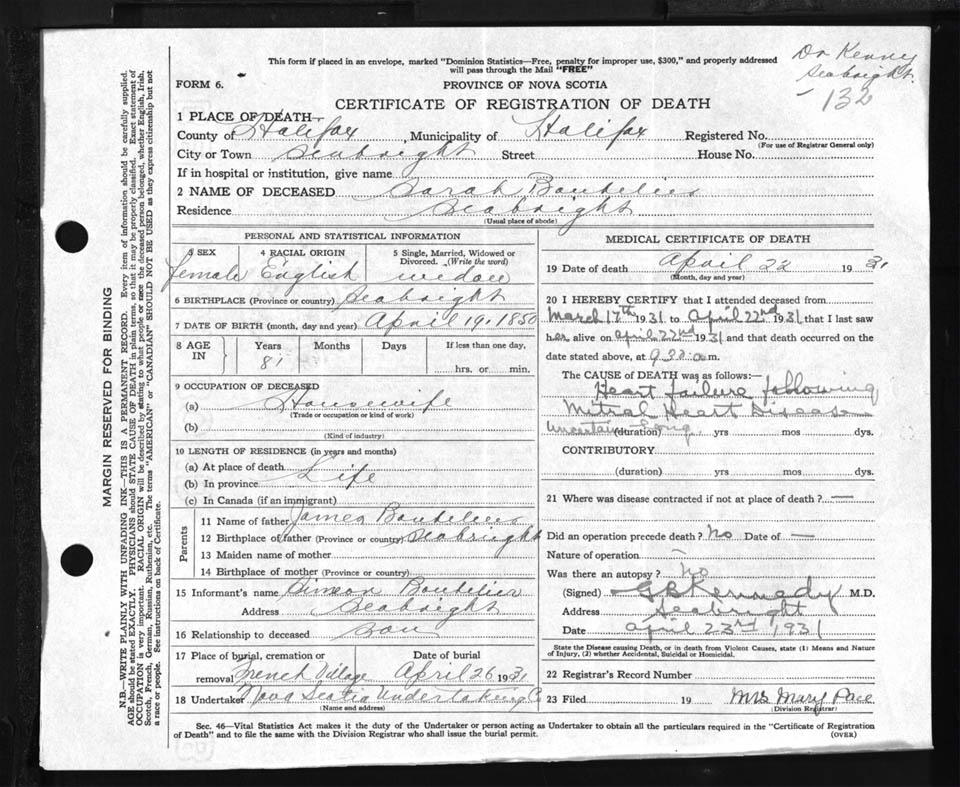 This form if placed in an envelope, marked "Dominion Statistics—Free, penalty for improper use, $300," and properly addressed
will pass through the Mail "FREE"
Dr Kenny
Seabright.
- 132
FORM 6.
PROVINCE OF NOVA SCOTIA
CERTIFICATE OF REGISTRATION OF DEATH
1 PLACE OF DEATH—
County of Halifax Municipality of Halifax Registered No.
(For use of Registrar General only)
City or Town Seabright Street House No.
If in hospital or institution, give name
2 NAME OF DECEASED Sarah Boutelier
Residence Seabright
(Usual place of abode)
PERSONAL AND STATISTICAL INFORMATION
3 SEX 4 RACIAL ORIGIN 5 Single, Married, Widowed or
Divorced. (Write the word)
female English
6 BIRTHPLACE (Province or country) Seabright
7 DATE OF BIRTH (month, day and year) April 19, 1850
8 AGE IN Years Months Days If less than one day,
81 hrs. or min.
9 OCCUPATION OF DECEASED
(a) Housewife
(Trade or occupation or kind of work)
(b)
(Kind of industry)
10 LENGTH OF RESIDENCE (in years and months)
(a) At place of death
(b) In province Life
(c) In Canada (if an immigrant)
Parents
11 Name of father James Boutelier
12 Birthplace of father (Province or country) Seabright
13 Maiden name of mother
14 Birthplace of mother (Province or country)
15 Informant's name Simeon Boutelier
Address Seabright
16 Relationship to deceased son
17 Place of burial, cremation or Date of burial
removal French Village April 26 1931
18 Undertaker Nova Scotia Undertaking Co
MEDICAL CERTIFICATE OF DEATH
19 Date of death April 22 1931
(Month, day and year)
20 I HEREBY CERTIFY that I attended deceased from
March 17th 1931 to April 22nd 1931 that I last saw
her alive on april 22nd 1931 and that death occurred on the
date stated above, at 9 30 a m.
The CAUSE OF DEATH was as follows:
Heart failure following
Mitral Heart Disease
Uncertain long (duration) yrs mos dys.
CONTRIBUTORY
(duration) yrs mos dys.
21 Where was disease contracted if not at place of death? —
Did an operation precede death? No Date of —
Nature of operation —
Was there an autopsy? No
(Signed) Kennedy M.D.
Address Seabright
Date april 23rd 1931
State the Disease causing Death, or in death from Violent Causes, state (1) Means and Nature
of Injury, (2) whether Accidental, Suicidal or Homicidal.
22 Registrar's Record Number
23 Filed 19 Mrs Mary Pace
(Division Registrar)
Sec. 46—Vital Statistics Act makes it the duty of the Undertaker or person acting as Undertaker to obtain all the particulars required in the "Certificate of Registration
of Death" and to file the same with the Division Registrar who shall issue the burial permit.
(OVER)
MARGIN RESERVED FOR BINDING
N.B.—WRITE PLAINLY WITH UNFADING INK—THIS IS A PERMANENT RECORD. Every item of information should be carefully supplied.
AGE should be stated EXACTLY. PHYSICIANS should STATE CAUSE OF DEATH in plain terms, so that it may be properly classified. Exact statement of
OCCUPATION is very important. RACIAL ORIGIN will be described by stating to what people or race the deceased person belonged, whether English, Irish,
Scotch, French, German, Russian, Ruthenian, etc. The terms "AMERICAN" or "CANADIAN" SHOULD NOT BE USED as they express citizenship but not
a race or people. See instructions on back of Certificate.